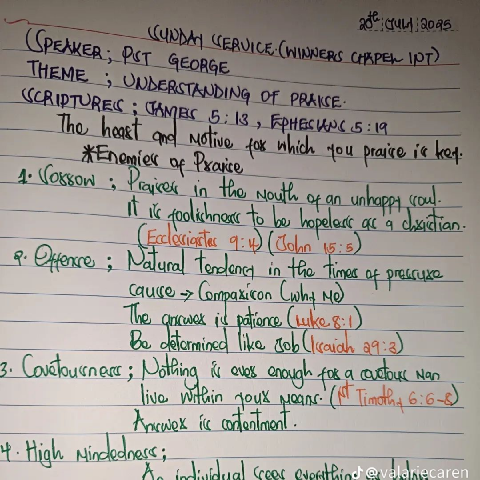 20th JULY 2025
SUNDAY SERVICE (WINNERS CHAPEL INT)
(SPEAKER; PST GEORGE
THEME ; UNDERSTANDING OF PRAISE.
SCRIPTURES ; JAMES 5:13, EPHESIANS 5:19
The heart and Motive for which you praise is key.
*Enemies of Praise
1. Sorrow ; Praises in the Mouth of an unhappy soul.
It is foolishness to be hopeless as a christian.
(Ecclesiastes 9:4) (John 15:5)
2. Offence ; Natural tendency in the times of pressure
cause → Comparison (Why Me)
The answer is patience (Luke 8:1
Be determined like Job (Isaiah 29:3)
3. Covetousness ; Nothing is ever enough for a covetous Man
live within your Means. (1st Timothy 6:6-8)
Answer is contentment.
4. High Mindedness;
An individual sees everything
@valariecaren